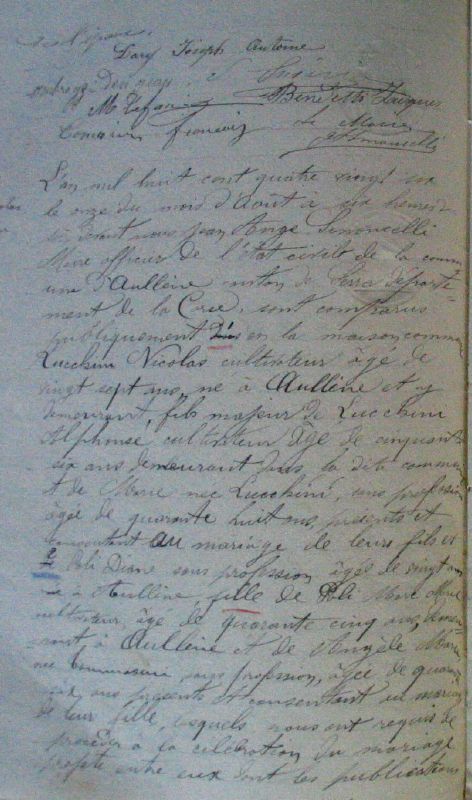 Dary Joseph Antoine
Benedetti Jacques
Mo Le Maire
Comour François Simoncelli
L'an mil huit cent quatre vingt six
le onze du mois d'Aout a six heures d
devant nous Jean Ange Simoncelli
Maire officier de l'état civil de la comm
une d'Aullène canton de Serra départe-
ment de la Corse, sont comparus
publiquement en la maison commune
Lucchini Nicolas cultivateur âgé de
vingt sept ans, né à Aullène et y
demeurant, fils majeur de Lucchini
Alphonse cultivateur âgé de cinquante
six ans demeurant dans la dite commune
et de Marie née Lucchini, sans profession
âgée de quarante huit ans, présents et
consentant au mariage de leurs fils et
Poli Diane sans profession âgée de vingt ans
à Aullène, fille de Poli Marc
cultivateur âgé de quarante cinq ans, demeu-
rant à Aullène et de Angèle Marie
née sans profession, âgée de quarante
six ans présents et consentant au mariage
de leur fille, lesquels nous ont requis de
procéder à la célébration du mariage
projeté entre eux dont les publications